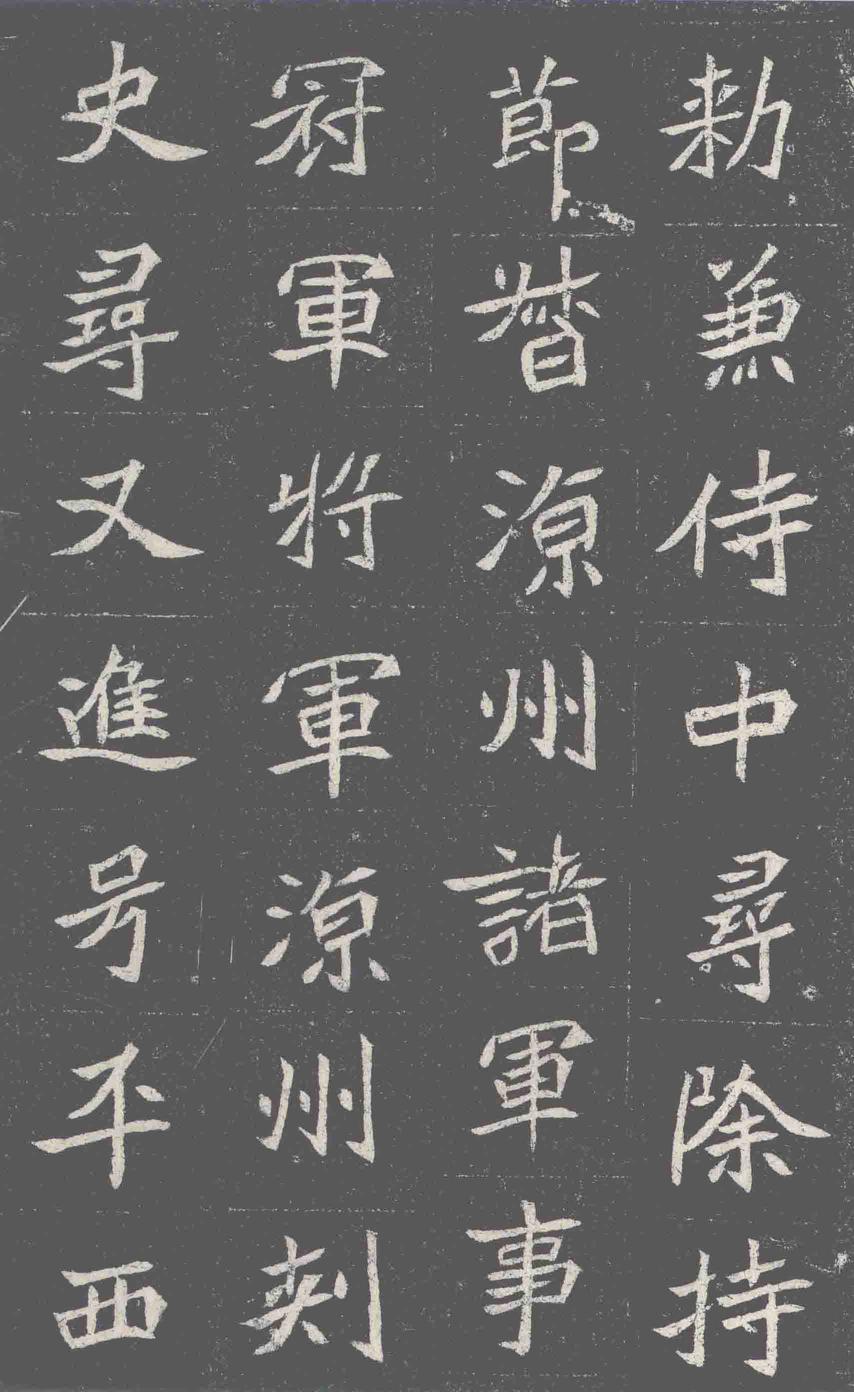 勑兼侍中尋除持
莭督源州諸軍事
冠軍將軍源州刾
史尋又進号平西